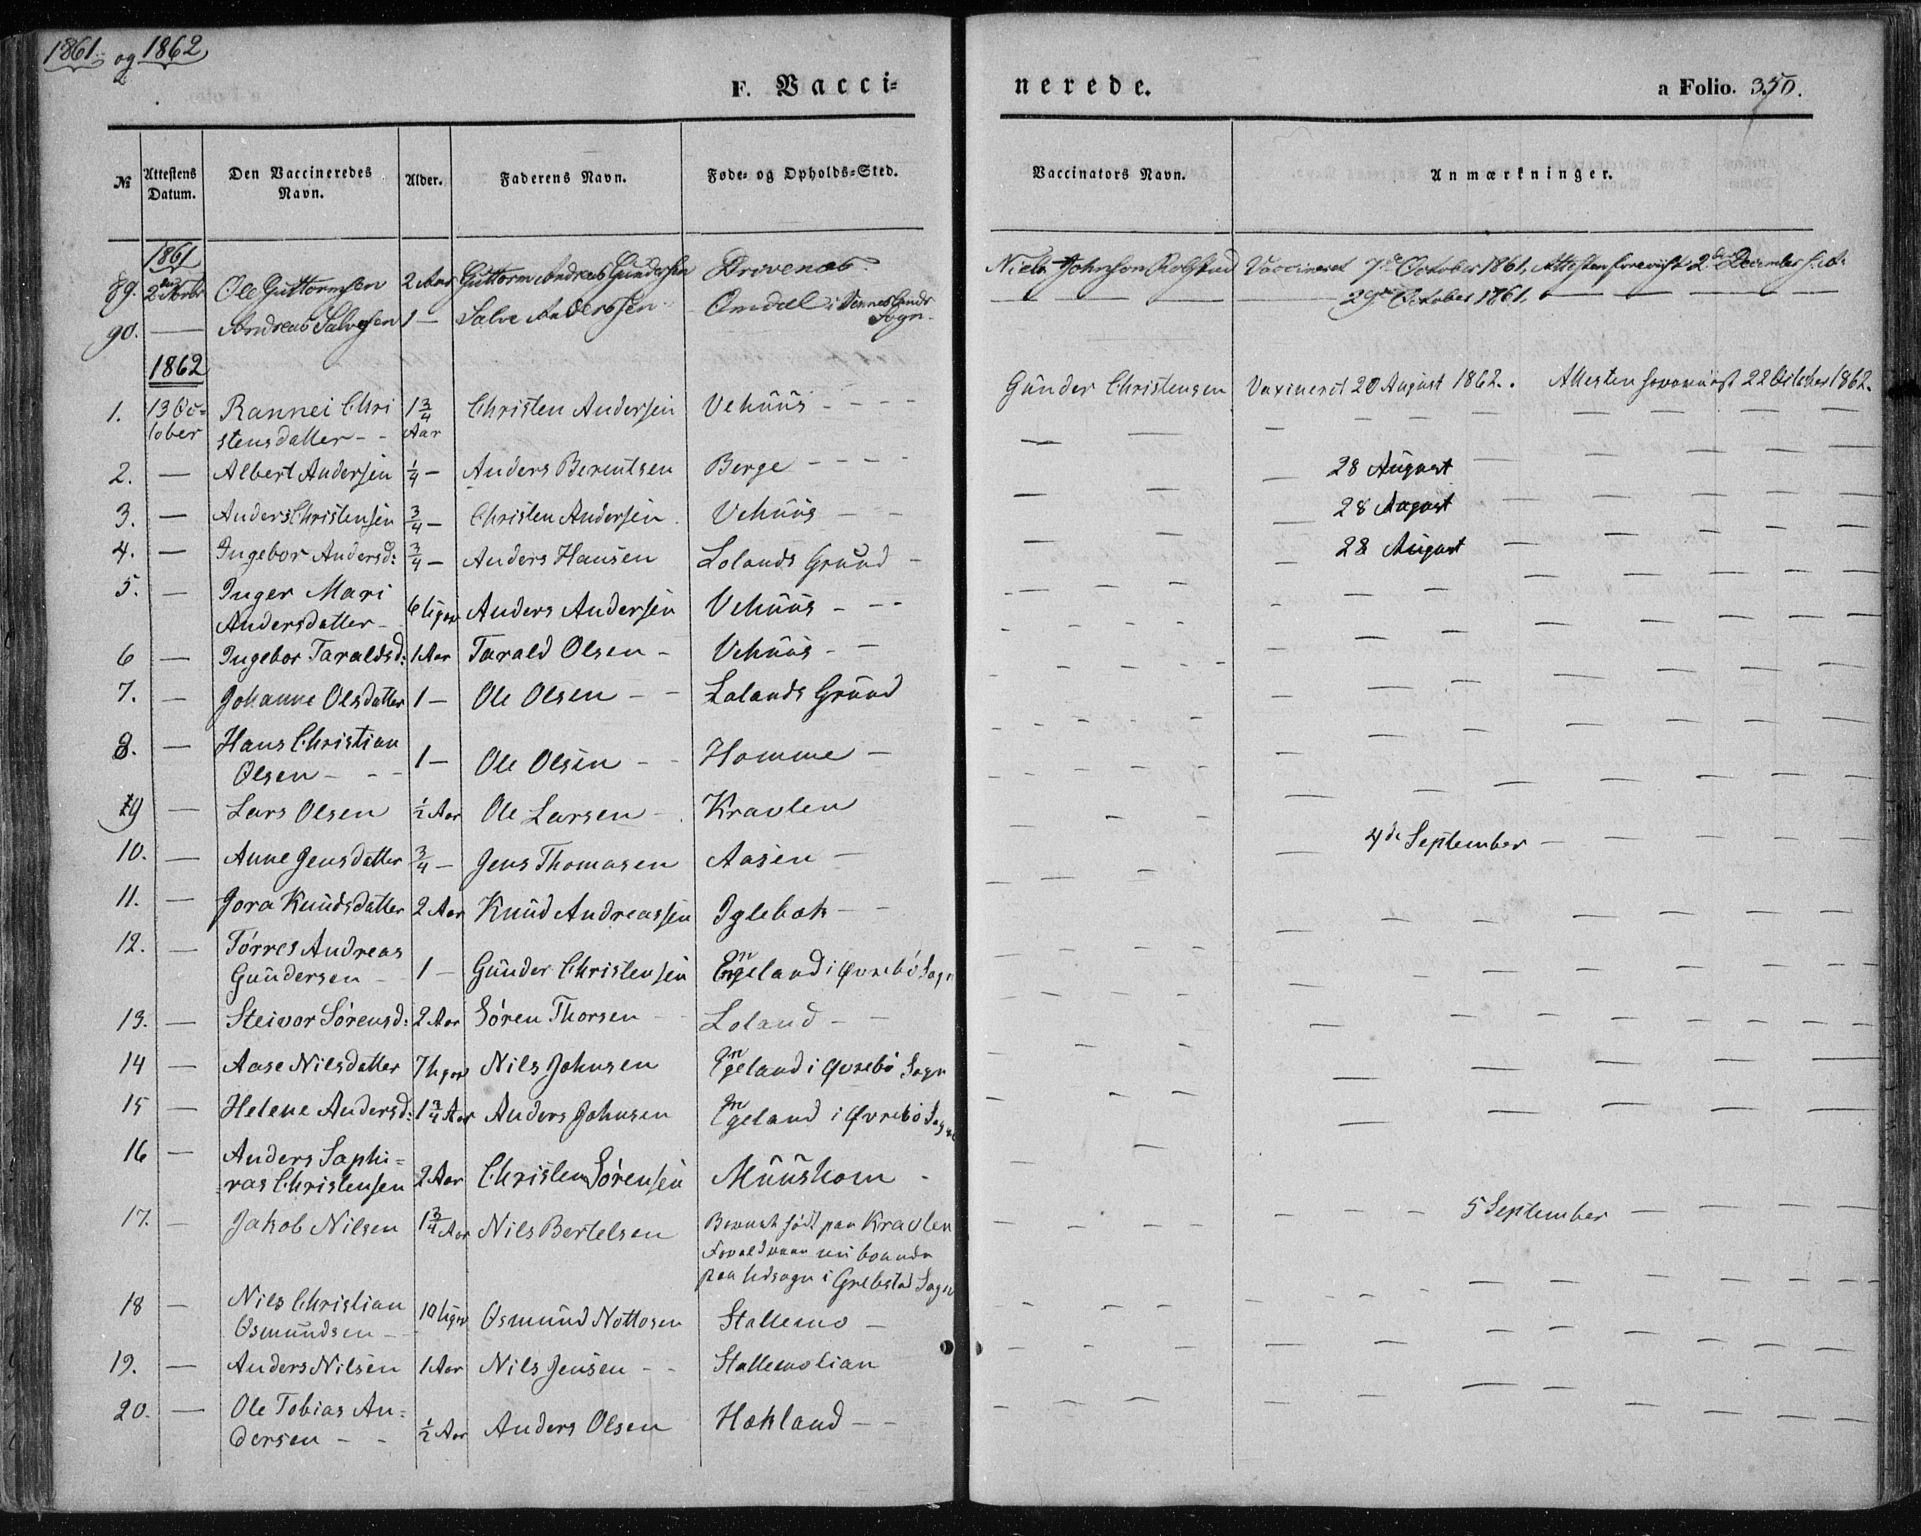 1861 og 1862
F. Vacci-
nerede.
a Folio. 350.
№ Attestens Datum. Den Vaccineredes Navn. Alder. Faderens Navn. Føde- og Opholds-Sted. Vaccinators Navn. Anmærkninger.
1861
89. Ole Guttormsen 2 Aar Guttorm Andreas Gundersen Drivenæs. Niels Johnson Vaccineret 7de October 1861, Attesten foreviist 2den December
90. — Andreas Salvesen 1 — Salve Anderssen Omdal i Vennesland Sogn. — — 29de October 1861. —
1862
1. 13 October Rannei Christensdatter - - 1 3/4 Aar Christen Andersen Vehuus - - - - Gunder Christensen Vaxineret 20 August 1862. Attesten foreviist 22 October 1862.
2. — Albert Andersen 1/4 — Anders Berentsen Berge - - - - — — 28 August — —
3. — Anders Christensen 3/4 — Christen Andersen Vehuus - - - — — 28 August — —
4. — Ingebor Andersd: 3/4 — Anders Hansen Lolands Grund - — — 28 August — —
5. — Inger Mari Andersdatter - 6 Uger Anders Andersen Vehuus - - -
6 — Ingebor Taraldsd: 1 Aar Tarald Olsen - Vehuus - -
7. — Johanne Olsdatter 1 — Ole Olsen - - Lolands Grund
8. — Hans Christian Olsen - - - 1 — Ole Olsen - - Homme -
9 — Lars Olsen 1/2 Aar Ole Larsen - Kravlen
10. — Anne Jensdatter 3/4 — Jens Thomasen Aasen - — — 4de September —
11. — Jora Knudsdatter 2 Aar Knud Andreassen Iglebæk - -
12. — Tørres Andreas Gundersen - 1 — Gunder Christensen Engeland i Øvrebø Sogn
13. — Steivor Sørensd: 2 Aar Søren Thorsen - - Loland - -
14 — Aase Nilsdatter 7 Uger Nils Johnsen Engeland i Øvrebø Sogn
15 — Helene Andersd: 1 3/4 Aar Anders Johnsen Engeland i Øvrebø Sogn
16 — Anders Saphi=
=ras Christensen 2 Aar Christen Sørensen Muushom -
17. — Jakob Nilsen 1 3/4 Aar Nils Bertelsen født paa Kravlen — — 5 September — —
nu boende
paa i Grebstad Sogn
18 — Nils Christian Osmundsen - - 10 Uger Osmund Nottosen Stallemo -
19. — Anders Nilsen 1 Aar Nils Jensen - - Stallemolian
20. — Ole Tobias An:
dersen - - 1/2 Aar Anders Olsen Hækland - -